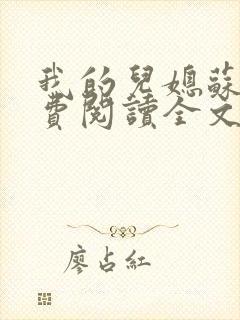 我的兒媳蘇
費閱讀全文
廖占紅